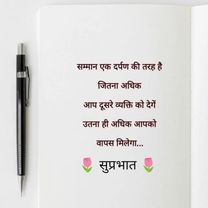 सम्मान एक दर्पण की तरह है
जितना अधिक
आप दूसरे व्यक्ति को देगें
उतना ही अधिक आपको
वापस मिलेगा...
सुप्रभात